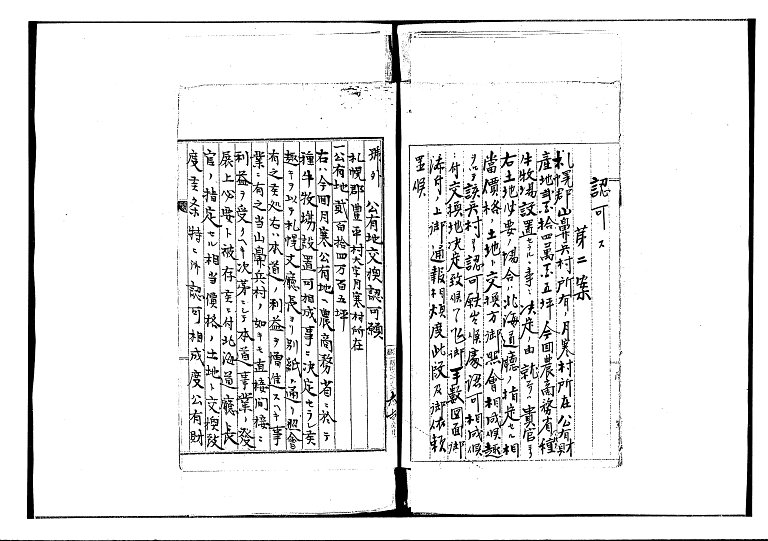 認可ス
第二案
札幌郡山鼻兵村所有ノ月寒村所在公有財
産地貳拾四萬百五坪今回農商務省ノ種
牛牧場設置セラルヽ事ニ決定ノ由就テハ貴官ヨリ
右土地必要ノ場合ハ北海道廳ノ指定セル相
當價格ノ土地ト交換方御照會相成候趣
ヲ以テ該兵村ヨリ認可願出候處認可相成候
ニ付交換地決定致候ハヽ御手數圖面御
添付ノ上御通報相煩度此段及御依頼
置候
號外 公有地交換認可願
札幌郡豊平村大字月寒村所在
一公有地貳百拾四万百五坪
右ハ今回月寒公有地ヘ農商務省ニ於テ
種牛牧場設置可相成事ニ決定セラレ候
趣ヲ以テ札幌支廳長ヨリ別紙ノ通リ照會
有之候処右ハ本道ノ利益ヲ増進スヘキ事
業ニ有之当山鼻兵村ノ如キモ直接間接ニ
利益ヲ受クヘキ次第ニシテ本道事業ノ發
展上必要ト被存候ニ付北海道廳長
官ノ指定セル相当價格ノ土地ト交換致
度候条特ニ御認可相成度公有財